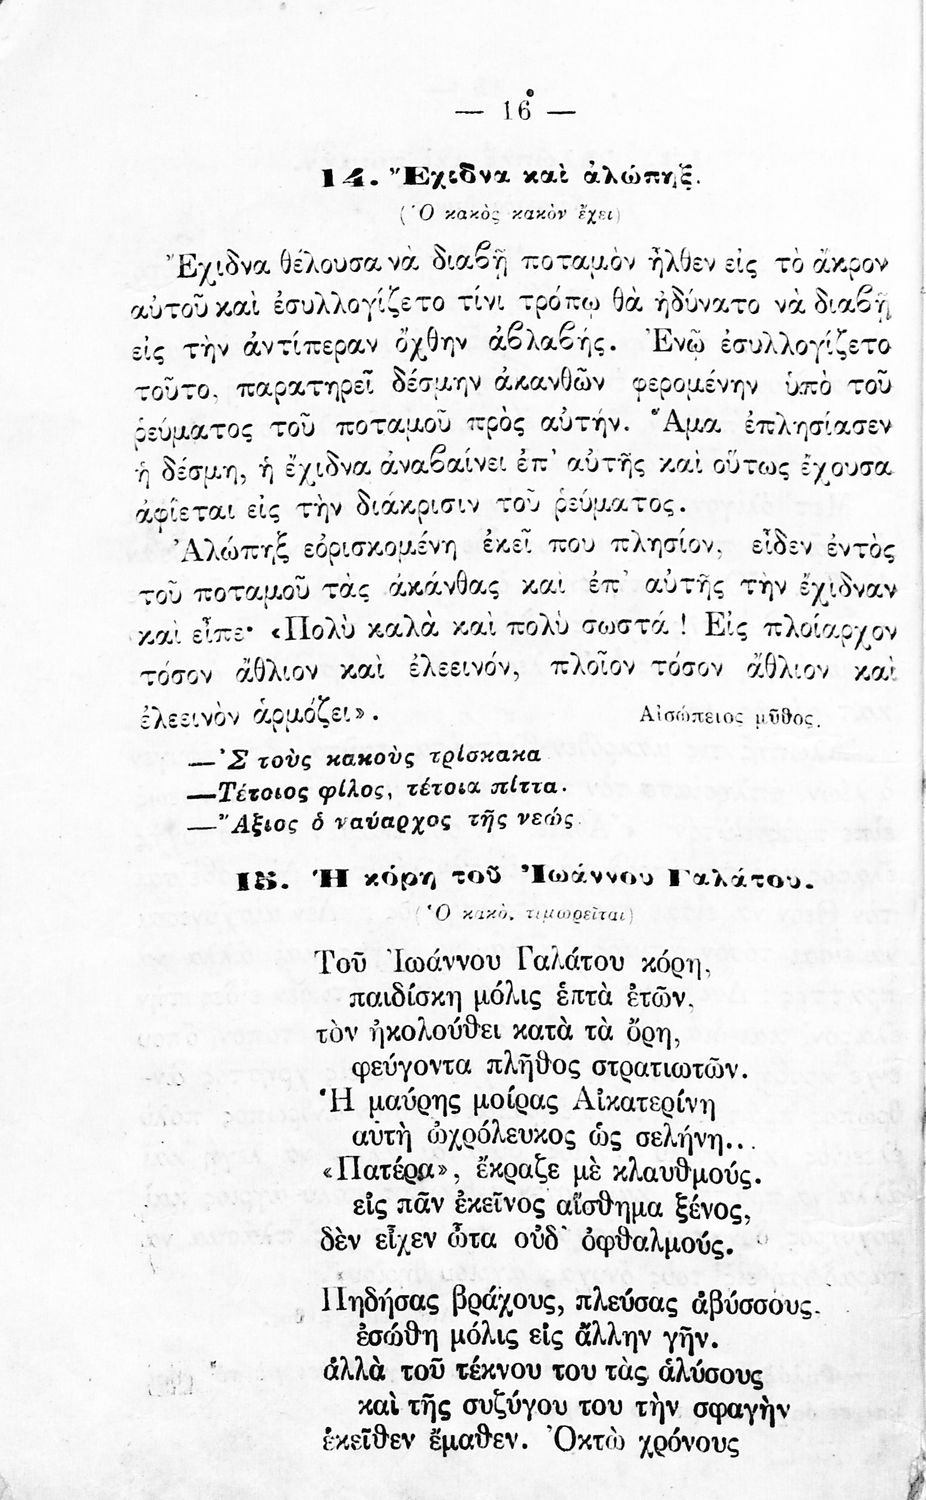 — 16 —
14. Ἔχιδνα καὶ ἀλώπηξ.
(Ὁ κακὸς κακὸν ἔχει)
Ἔχιδνα θέλουσα νὰ διαβῇ ποταμὸν ἦλθεν εἰς τὸ ἄκρον
αὐτοῦ καὶ ἐσυλλογίζετο τίνι τρόπῳ θὰ ἠδύνατο νὰ διαβῇ
εἰς τὴν ἀντίπεραν ὄχθην ἀβλαβής. Ἐνῷ ἐσυλλογίζετο
τοῦτο, παρατηρεῖ δέσμην ἀκανθῶν φερομένην ὑπὸ τοῦ
ῥεύματος τοῦ ποταμοῦ πρὸς αὐτήν. Ἅμα ἐπλησίασεν
ἡ δέσμη, ἡ ἔχιδνα ἀναβαίνει ἐπ᾿ αὐτῆς καὶ οὕτως ἔχουσα
ἀφίεται εἰς τὴν διάκρισιν τοῦ ῥεύματος.
Ἀλώπηξ εὑρισκομένη ἐκεῖ που πλησίον, εἶδεν ἐντὸς
τοῦ ποταμοῦ τὰς ἀκάνθας καὶ ἐπ᾿ αὐτῆς τὴν ἔχιδναν
καὶ εἶπε· «Πολὺ καλὰ καὶ πολὺ σωστά! Εἰς πλοίαρχον
τόσον ἄθλιον καὶ ἐλεεινόν, πλοῖον τόσον ἄθλιον καὶ
ἐλεεινὸν ἁρμόζει». Αἰσώπειος μῦθος.
—Ἐ τοὺς κακοὺς τρίσκακα
—Τέτοιος φίλος, τέτοια πίττα.
—Ἄξιος ὁ ναύαρχος τῆς νεώς.
15. Ἡ κόρη τοῦ Ἰωάννου Γαλάτου.
(Ὁ κακὸς τιμωρεῖται)
Τοῦ Ἰωάννου Γαλάτου κόρη,
παιδίσκη μόλις ἑπτὰ ἐτῶν,
τὸν ἠκολούθει κατὰ τὰ ὄρη,
φεύγοντα πλῆθος στρατιωτῶν.
Ἡ μαύρης μοίρας Αἰκατερίνη
αὐτὴ ὠχρόλευκος ὡς σελήνη...
«Πατέρα», ἔκραζε μὲ κλαυθμούς.
εἰς πᾶν ἐκεῖνος αἴσθημα ξένος,
δὲν εἶχεν ὦτα οὐδ᾿ ὀφθαλμούς.
Πηδήσας βράχους, πλεύσας ἀβύσσους,
ἐσώθη μόλις εἰς ἄλλην γῆν.
ἀλλὰ τοῦ τέκνου του τὰς ἁλύσους
καὶ τῆς συζύγου του τὴν σφαγὴν
ἐκεῖθεν ἔμαθεν. Ὀκτὼ χρόνους